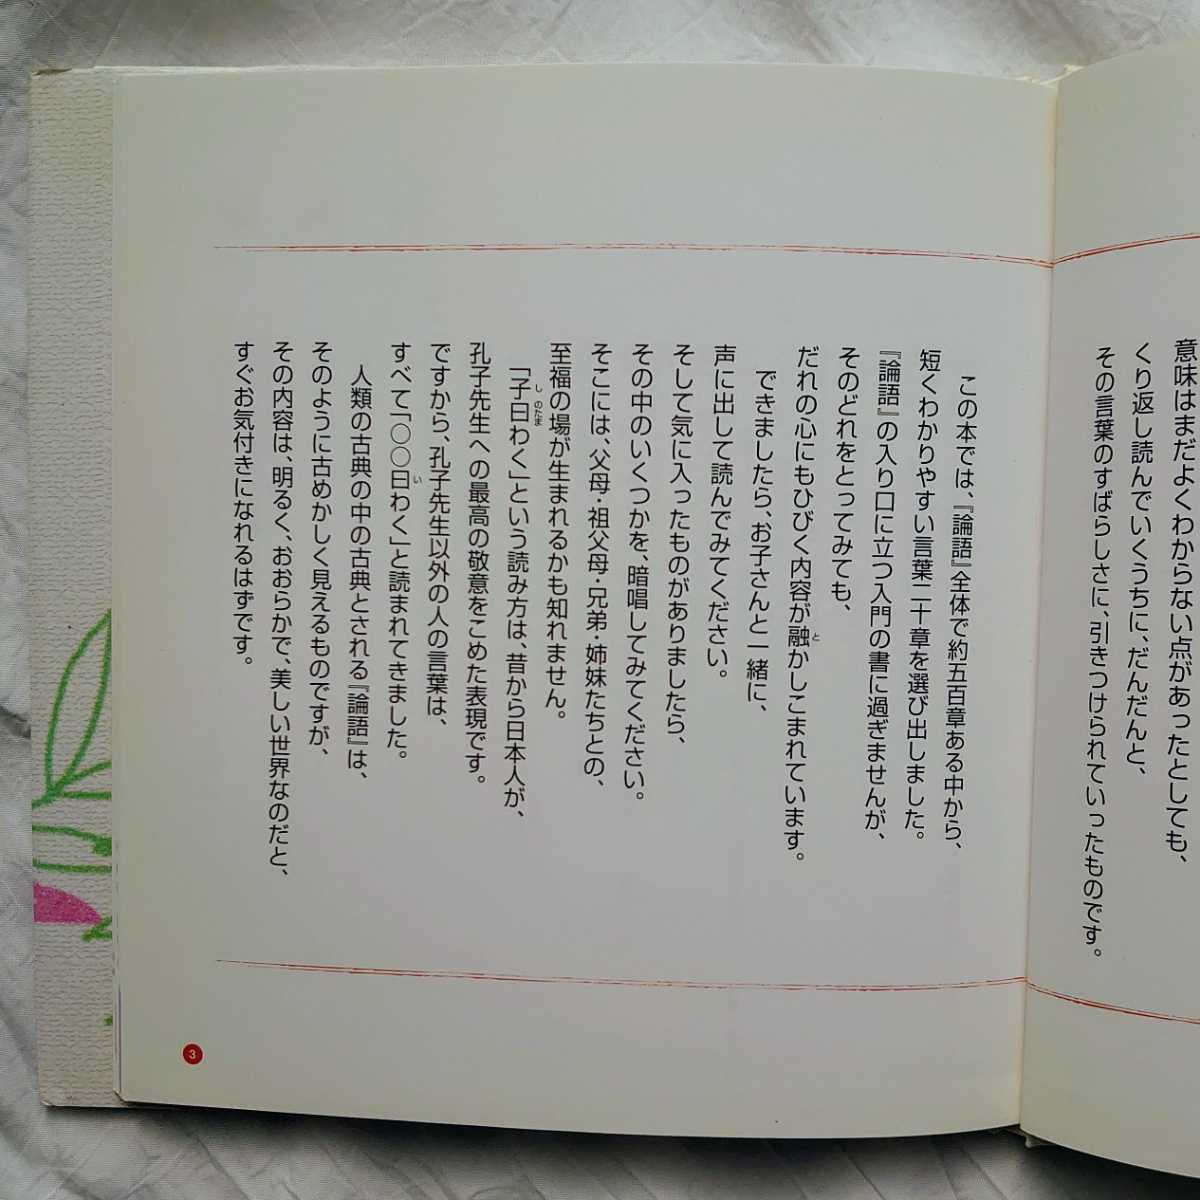 意味はまだよくわからない点があったとしても、
くり返し読んでいくうちに、だんだんと、
その言葉のすばらしさに、引きつけられていったものです。
この本では、『論語』全体で約五百章ある中から、
短くわかりやすい言葉二十章を選び出しました。
『論語』の入り口に立つ入門の書に過ぎませんが、
そのどれをとってみても、
だれの心にもひびく内容が融かしこまれています。
と
できましたら、お子さんと一緒に、
声に出して読んでみてください。
そして気に入ったものがありましたら、
その中のいくつかを、暗唱してみてください。
そこには、父母・祖父母・兄弟・姉妹たちとの、
至福の場が生まれるかも知れません。
「子曰わく」という読み方は、昔から日本人が、
し のたま
孔子先生への最高の敬意をこめた表現です。
ですから、孔子先生以外の人の言葉は、
すべて「〇〇曰わく」と読まれてきました。
い
人類の古典の中の古典とされる『論語』は、
そのように古めかしく見えるものですが、
その内容は、明るく、おおらかで、美しい世界なのだと、
すぐお気付きになれるはずです。
3